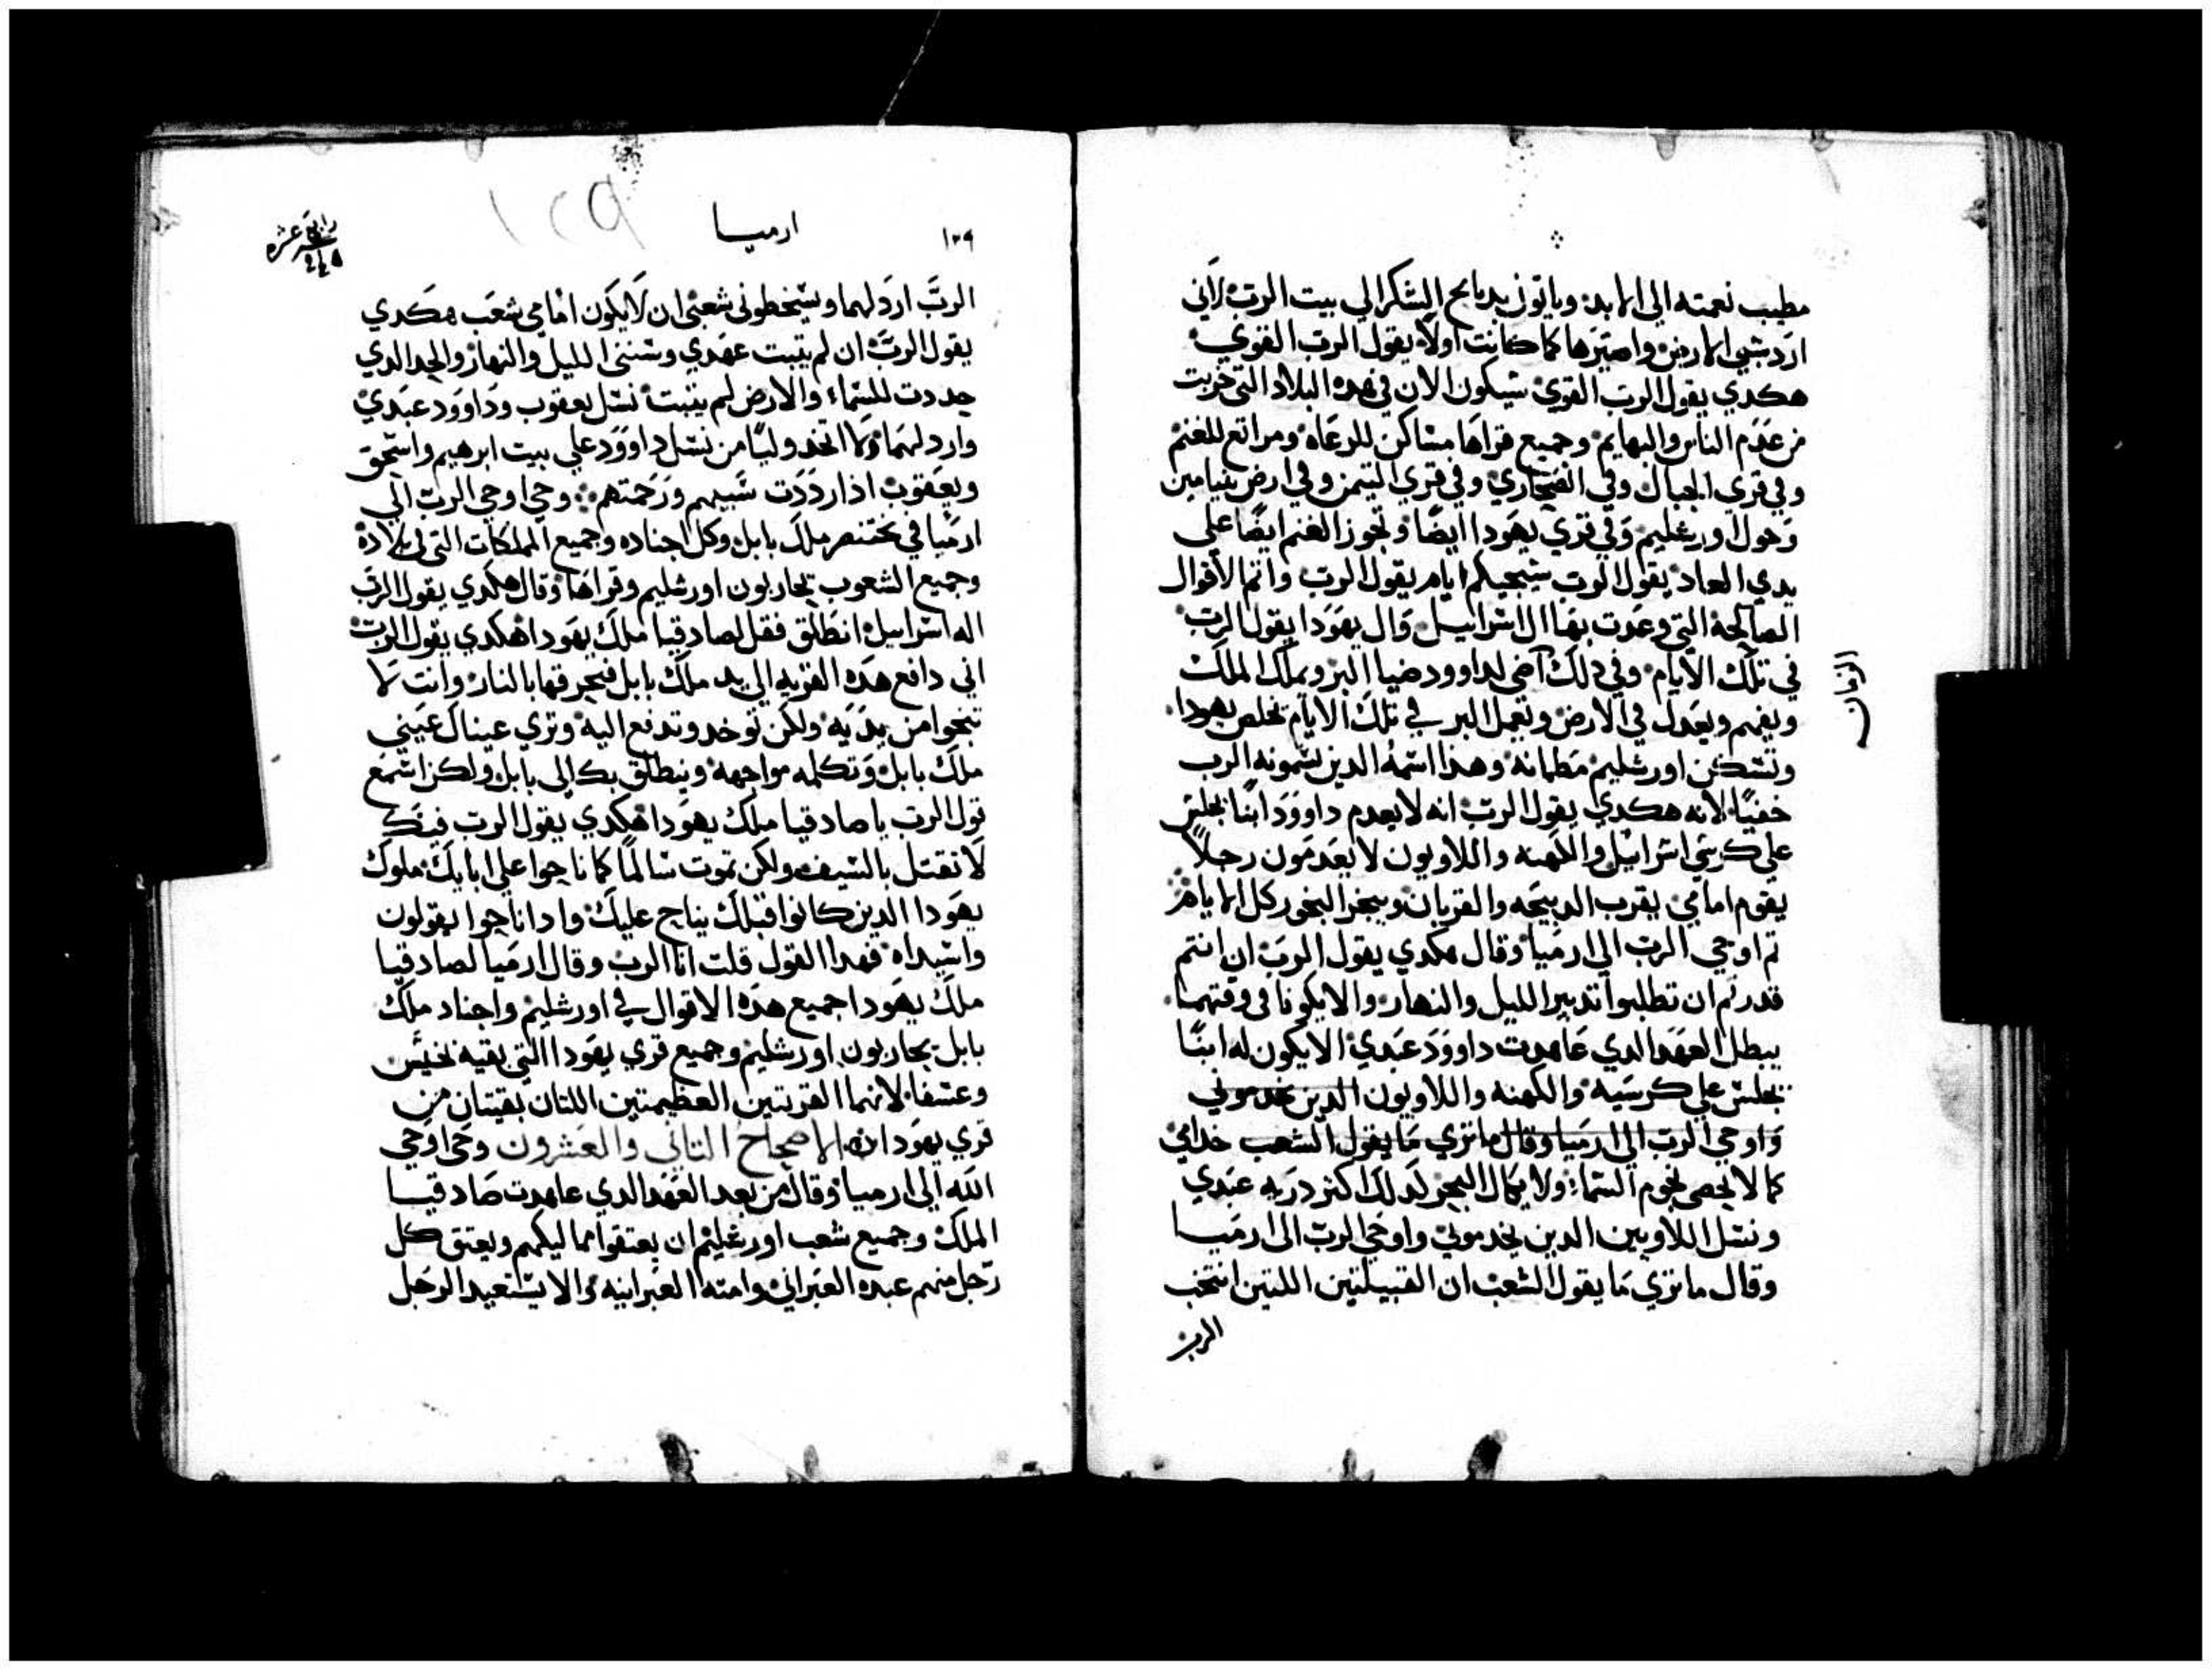 مطيب نعمته الي الابد وياتون بدبايح الشكر الي بيت الرب لاني
ارد شبي الارض واصيرها كما كانت اولا يقول الرب القوي
هكدي يقول الرب القوي سيكون الان في هده البلاد التي خربت
من عدم الناس والبهايم وجميع قراها مساكن للرعاه ومراتع للغنم
وفي قري الجبال وفي الصحاري وفي قري التيمن وفي ارض بنيامين
وحول اورشليم وفي قري يهودا ايضا وتجوز الغنم ايضا علي
يدي العاد يقول الرب ستجيكم ايام يقول الرب واتم الاقوال
الصالحة التي وعدت بها ال اسراييل وال يهودا يقول الرب
في تلك الايام وفي دلك اضي لداوود ضيا البر ويملك الملك
ويفهم ويعدل في الارض ويعمل البر في تلك الايام تخلص يهودا
وتسكن اورشليم مطمانه وهدا اسمه الدين يسمونه الرب
خفيا لانه هكدي يقول الرب انه لا يعدم داوود ابنا يجلس
علي كرسي اسراييل والكهنه واللاويون لا يعدمون رجلا
يقوم امامي يقرب الدبيحه والقربان ويبخر البخور كل الايام
تم اوحي الرب الي ارميا وقال هكدي يقول الرب ان انتم
قدرتم ان تطلبوا تدبير الليل والنهار والا يكونا في وقتهما
يبطل العهد الدي عاهدت داوود عبدي الا يكون له ابنا
يجلس علي كرسيه والكهنه واللاويون الدين يخدموني
واوحي الرب الي ارميا وقال ما تري ما يقول الشعب خدامي
كما لا يحصي نجوم السما ولا يكال البحر لدلك اكتر دريه عبدي
ونسل اللاويين الدين يخدموني واوحي الرب الي ارميا
وقال ما تري ما يقول الشعب ان القبيلتين اللتين انتخب
الرب
ارميا
١٢٩
١٢٩
رابعة عشره
الرب اردلهما وسيخطوني شعبي ان لا يكون امامي شعب هكدي
يقول الرب ان لم يتبت عهدي وسنني الليل والنهار والحد الدي
حددت للسماء والارض لم يتبت نسل يعقوب وداوود عبدي
واردلهما ولا اتخد وليا من نسل داوود علي بيت ابرهيم واسحق
ويعقوب ادا رددت شبيهم ورحمتهم وحي اوحي الرب الي
ارميا في بختنصر ملك بابل وكل اجناده وجميع المملكات التي في بلاده
وجميع الشعوب يحاربون اورشليم وقراها وقال هكدي يقول الرب
اله اسراييل انطلق فقل لصادقيا ملك يهودا هكدي يقول الرب
اني دافع هده القريه الي يد ملك بابل فيحرقها بالنار وانت لا
تنجوا من يديه ولكن توخد وتدفع اليه وتري عيناك عيني
ملك بابل وتكلمه مواجهه وينطلق بك الي بابل ولكن اسمع
قول الرب يا صادقيا ملك يهودا هكدي يقول الرب فيك
لا تقتل بالسيف ولكن تموت سالما كما ناحوا علي ابايك ملوك
يهودا الدين كانوا قبلك يناح عليك وادا ناحوا يقولون
واسيداه فهدا القول قلت انا الرب وقال ارميا لصادقيا
ملك يهودا جميع هده الاقوال في اورشليم واجناد ملك
بابل يحاربون اورشليم وجميع قري يهودا التي بقيه لخيس
وعسفا لانهما القريتين العظيمتين اللتان بقيتان من
قري يهودا الاصحاح التاني والعشرون وحي اوحي
الله الي ارميا وقال من بعد العهد الدي عاهدت صادقيا
الملك وجميع شعب اورشليم ان يعتقوا مماليكهم ويعتق كل
رجل منهم عبده العبراني وامته العبرانيه والا يستعيد الرجل